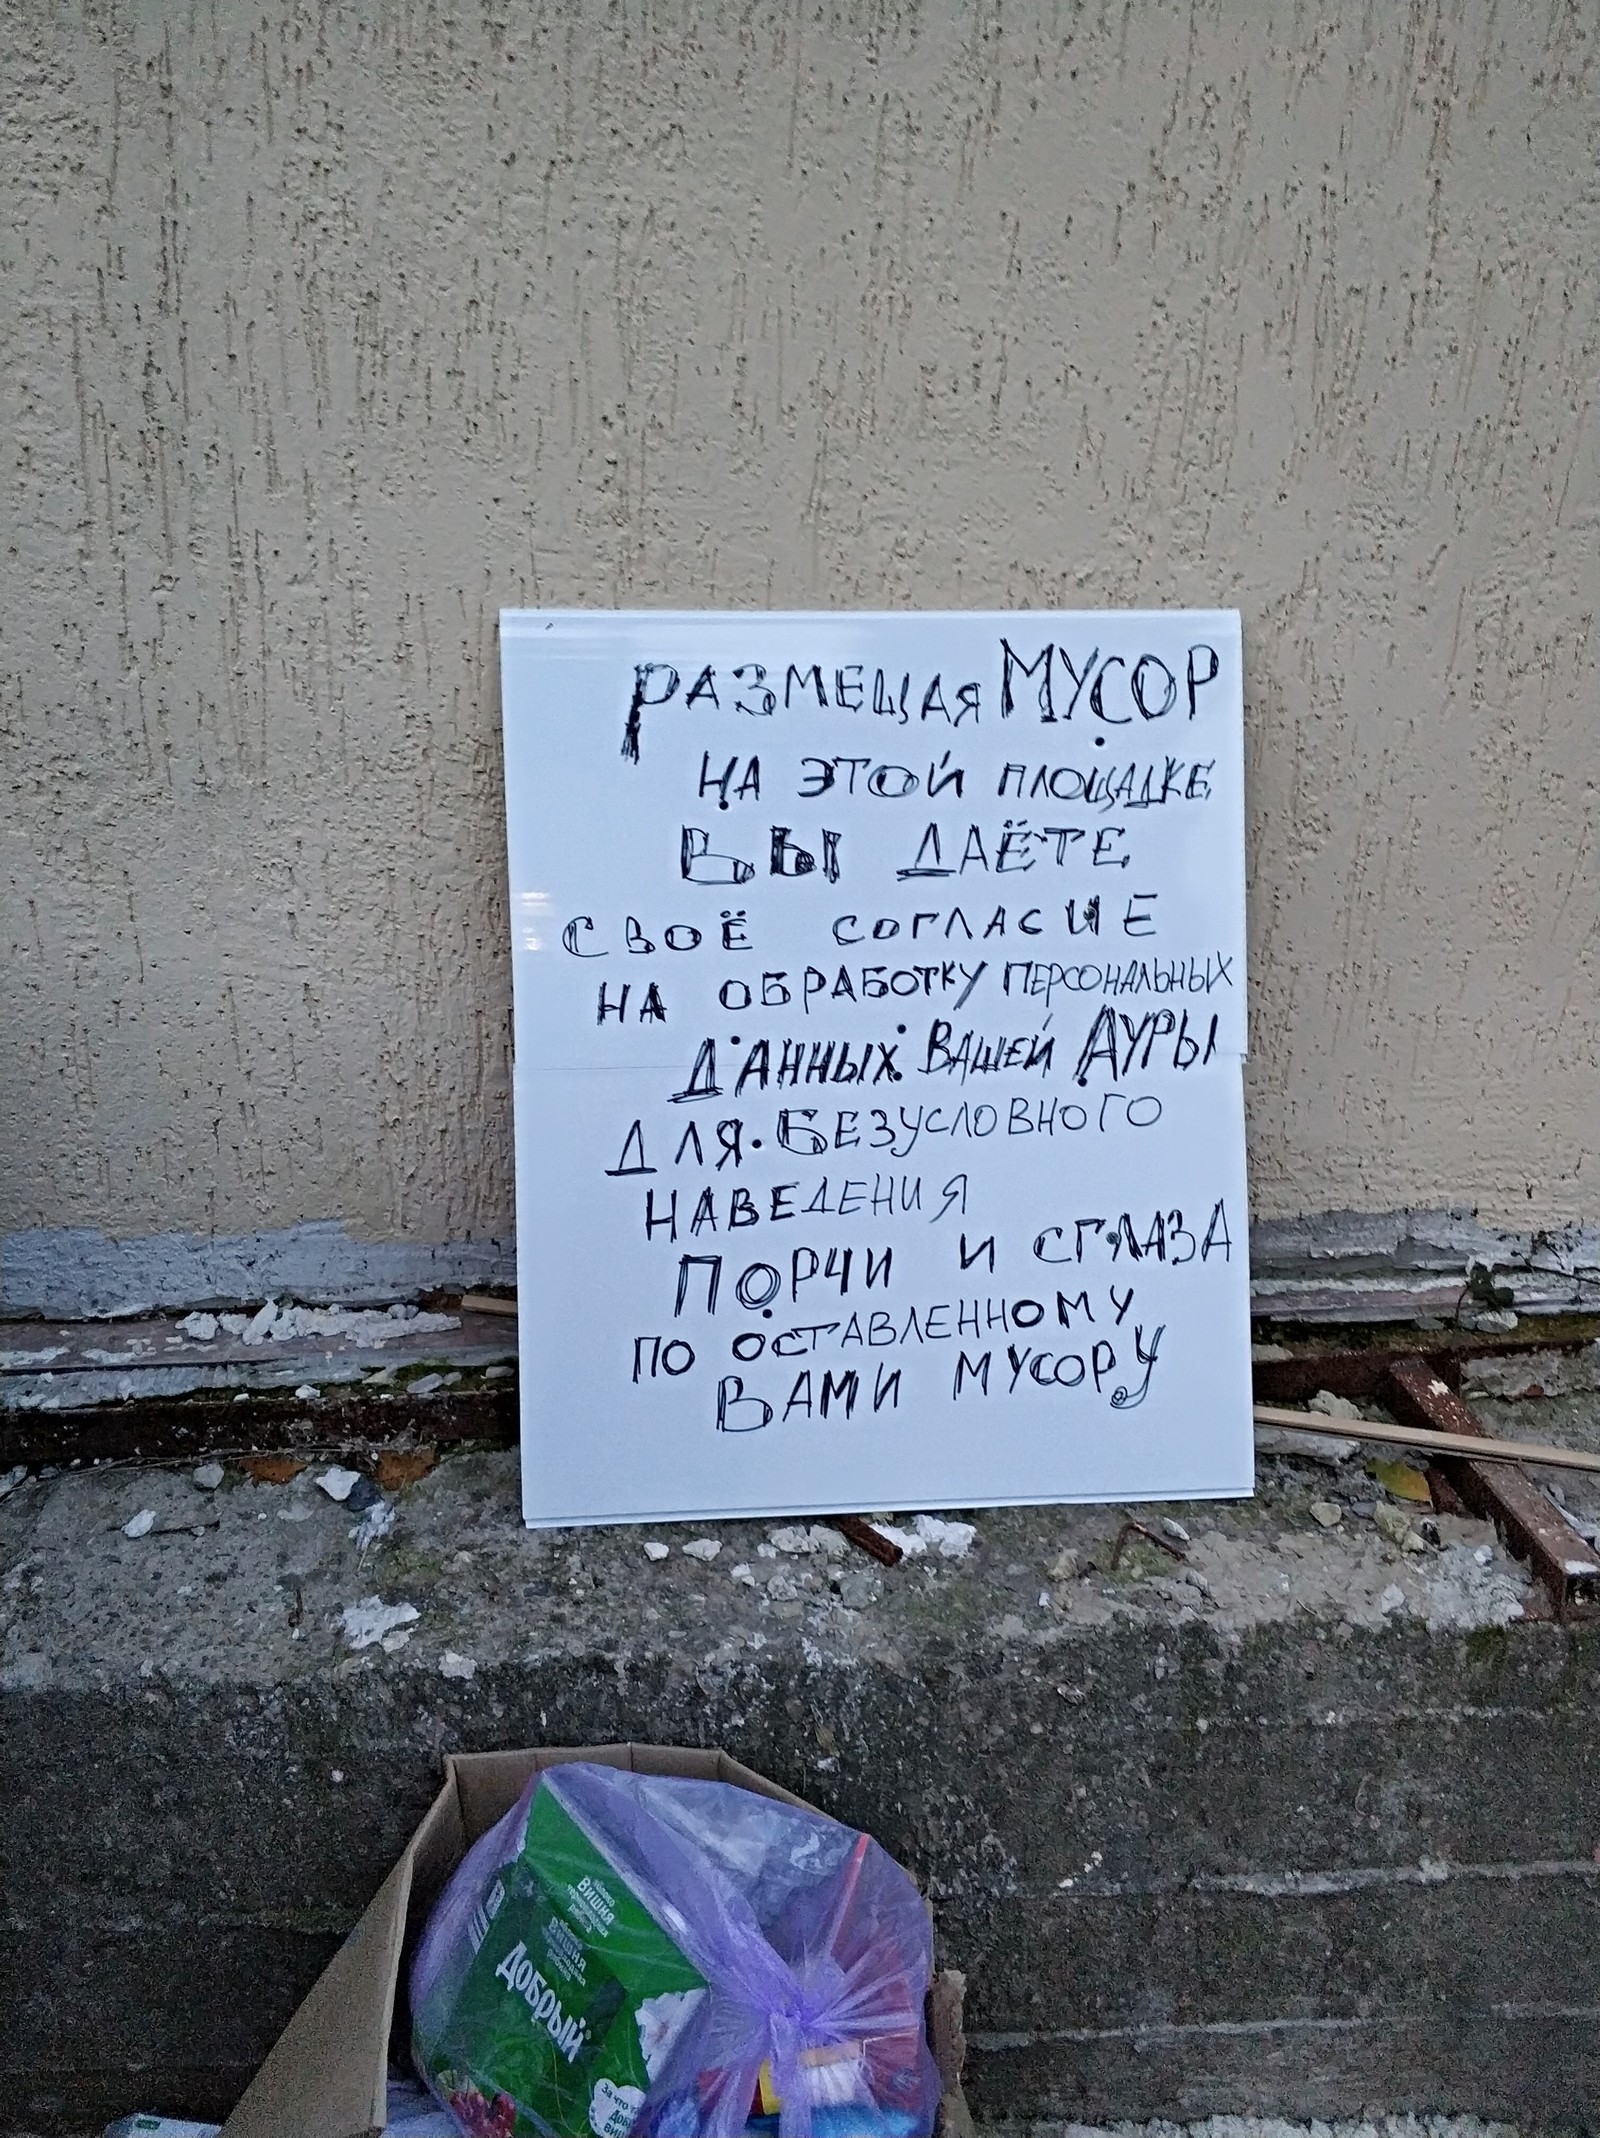 РАЗМЕЩАЯ МУСОР
НА ЭТОЙ ПЛОЩАДКЕ
ВЫ ДАЁТЕ
СВОЁ СОГЛАСИЕ
НА ОБРАБОТКУ ПЕРСОНАЛЬНЫХ
ДАННЫХ ВАШЕЙ АУРЫ
ДЛЯ БЕЗУСЛОВНОГО
НАВЕДЕНИЯ
ПОРЧИ И СГЛАЗА
ПО ОСТАВЛЕННОМУ
ВАМИ МУСОРУ
Вишня
Добрый
За что